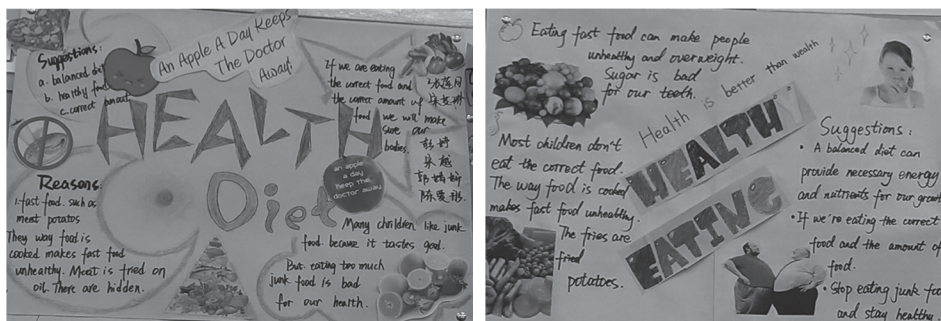 Suggestions:
a. balanced diet
b. healthy food
c. correct amount
An Apple A Day Keeps
The Doctor
Away!
If we are eating
the correct food and
the correct amount of
food we will make
sure our
bodies.
HEALTH
Diet
an apple
a day
keep the
doctor away
Reasons:
1. fast food. such as
meat potatos
They way food is
cooked makes fast food
unhealthy. Meat is fried on
oil. There are hidden.
Many children like junk
food. because it tastes good.
But. eating too much
junk food is bad
for our health.
Eating fast food can make people
unhealthy and overweight.
Sugar is bad
for our teeth.
Health is better than wealth
HEALTHY
EATING
Most children don't
eat the correct food.
The way food is cooked
makes fast food unhealthy.
The fries are
fried
potatoes.
Suggestions:
• A balanced diet can
provide necessary energy
and nutrients for our growth
• If we're eating the correct
food and the amount of
food.
• Stop eating junk food
and stay healthy.